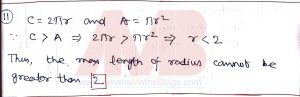 11 C = 2πr and A = πr²
∵ C > A ⇒ 2πr > πr² ⇒ r < 2
Thus, the max length of radius cannot be
greater than 2